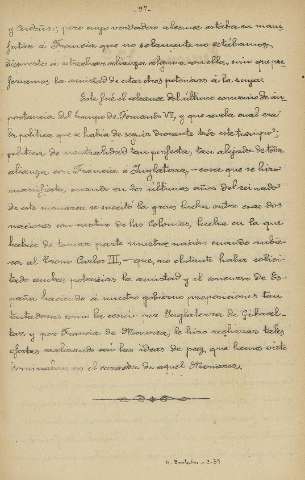 - 97 -
y Carlos; pero cuyo verdadero alcance estaba en manifestar
á Francia que no solamente no estábamos
dispuestos á estrechar alianza alguna con ella, sino que preferíamos
la amistad de otras dos potencias á la suya.
Este fué el alcance del último convenio de importancia
del tiempo de Fernando VI, y que revela cual era
la política que se había de seguir durante todo este tiempo;
política de neutralidad tan perfecta, tan alejada de toda
alianza con Francia é Inglaterra, - cosa que se hizo
manifiesta, cuando en los últimos años del reinado
de este monarca se suscitó la gran lucha entre esas dos
naciones con motivo de las Colonias, lucha en la que
había de tomar parte nuestra nación cuando subiera
al trono Carlos III, - que, no obstante haber solicitado
ambas potencias la amistad y el concurso de España
haciendo á nuestro gobierno proposiciones tan
tentadoras como la cesión por Inglaterra de Gibraltar,
y por Francia de Menorca, le hizo rechazar tales
ofertas realizando así las ideas de paz, que hemos visto
dominaban en el corazón de aquel Monarca.